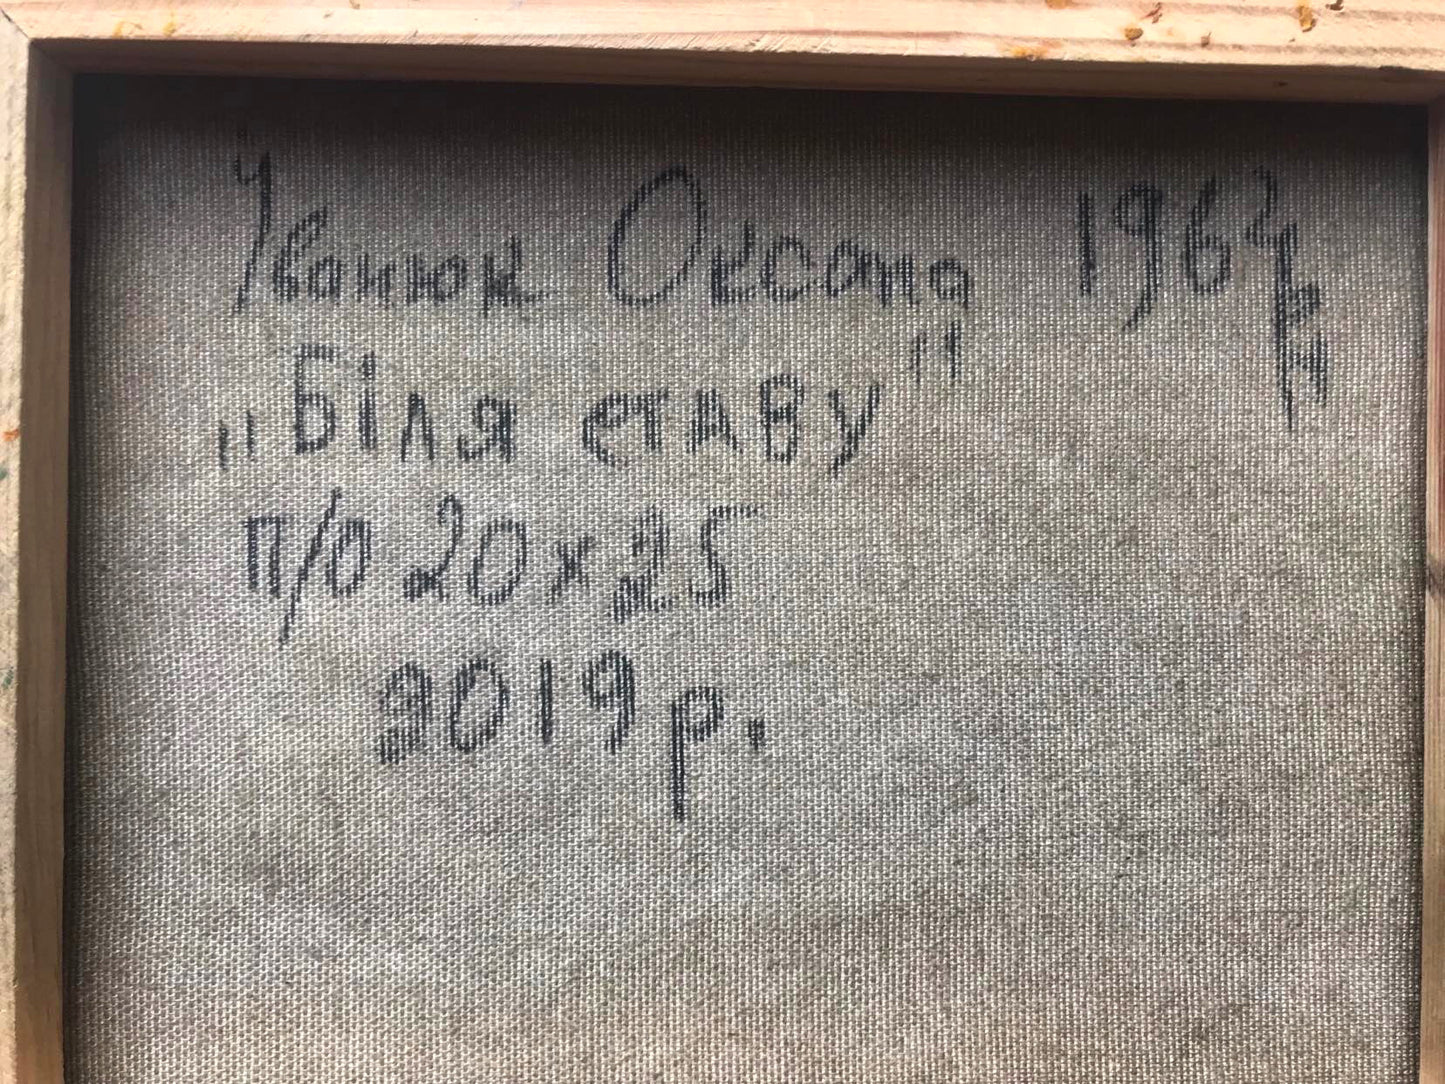 Іванюк Оксана 196
„Біля ставу"
п/о 20х25
2019 р.